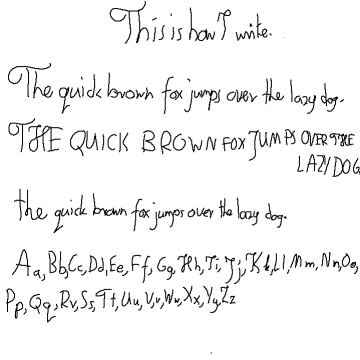 This is how I write.
The quick brown fox jumps over the lazy dog.
THE QUICK BROWN FOX JUMPS OVER THE
LAZY DOG
the quick brown fox jumps over the lazy dog.
Aa, Bb, Cc, Dd, Ee, Ff, Gg, Hh, Ii, Jj, Kk, Ll, Mm, Nn, Oo,
Pp, Qq, Rr, Ss, Tt, Uu, Vv, Ww, Xx, Yy, Zz